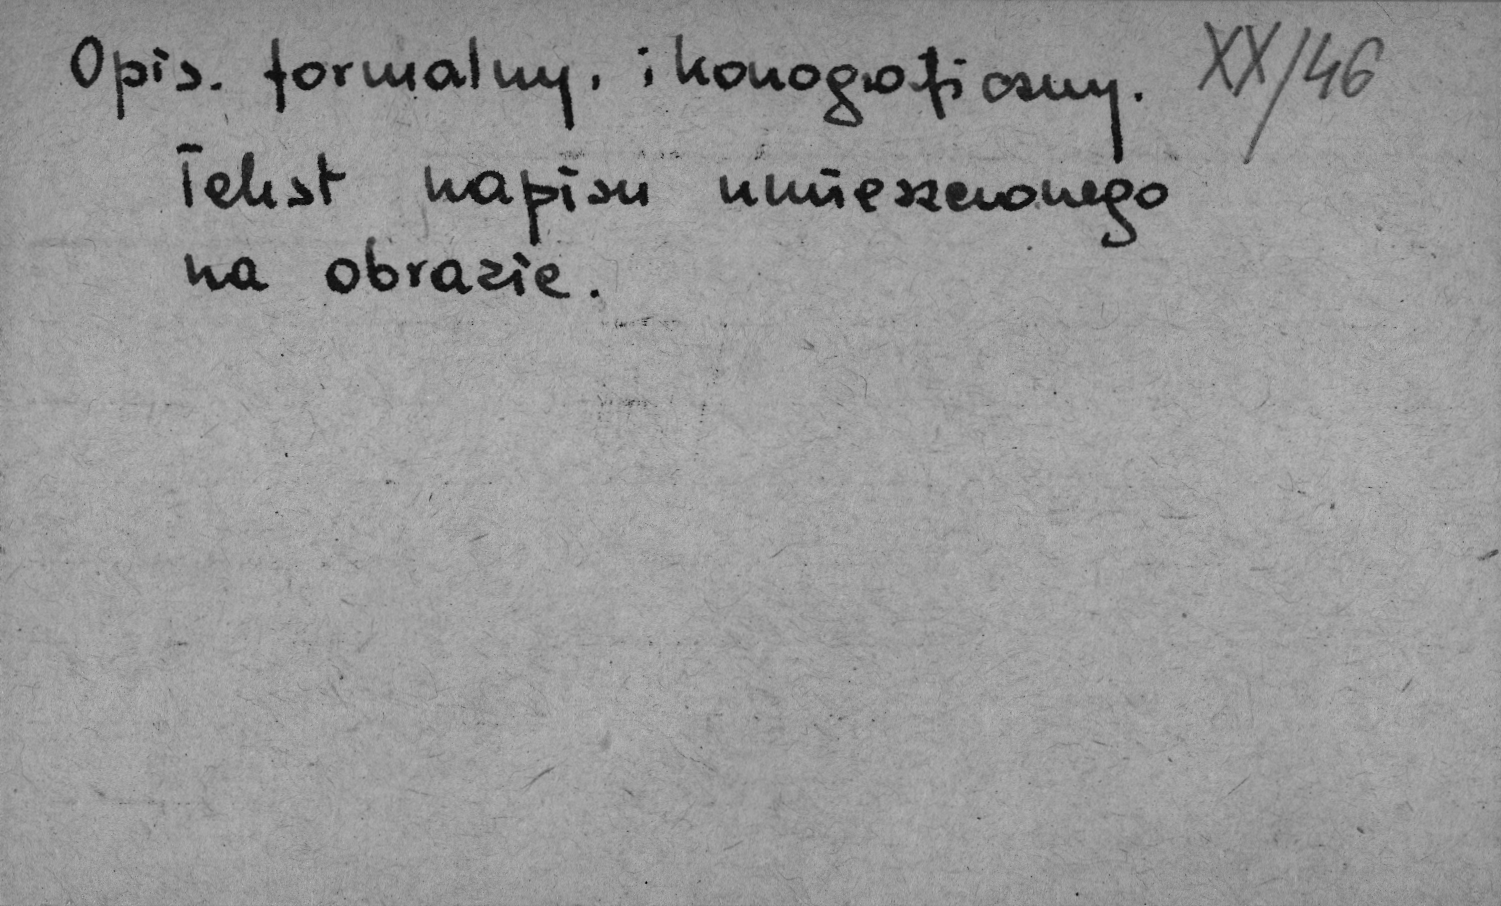 Opis. formalny, ikonograficzny. XX/46
Tekst napisu umieszczonego
na obrazie.